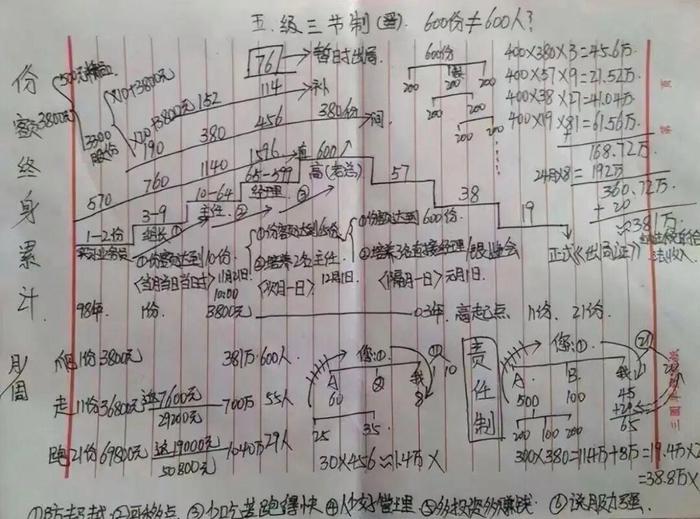 五级三节制(晋). 600份≠600人?
份额终身累计
月/周
3800元
500元
3300
股份
X10+3800元
X20+3800元
76
暂时出局
114
补
152
190
380
456
380份
间
570
760
1140
1596
直
600
高(老总)
57
38
19
1-2份
3-9
组长①
10-64
主任②
65-599
经理③
①份额达到10份
<当月当日当时>
11月21日
10:00
①份额达到65份
②培养2名主任
<次月一日>
12月1日
①份额达到600份.
②培养3名直接经理
<隔月一日> 元月1日
正式《出局证》
600份
200 200 200
200 200
200 200
400×380×3=45.6万
400×57×9=21.52万
400×38×27=41.04万
400×19×81=61.56万
168.72万
24月×8=192万
360.72万
+ 20
≈381万
98年. 1份. 3800元
03年. 高起点、11份、21份.
1份3800元
381万·600人
走11份36800元
送7600元
29200元
700万 55人
跑21份69800元
送19000元
50800元
1040万 29人
您:①
A
②
我
60
25 35
⑪
10
30×456≈1.4万×
责任制
您:①
A. B. 我
500 100 45
+20
65
200 100 200
㉑
300×380=11.4万+8万=19.4万×2
=38.8万×
③
④人少好管理
⑤多投资多赚钱
⑥说服力强